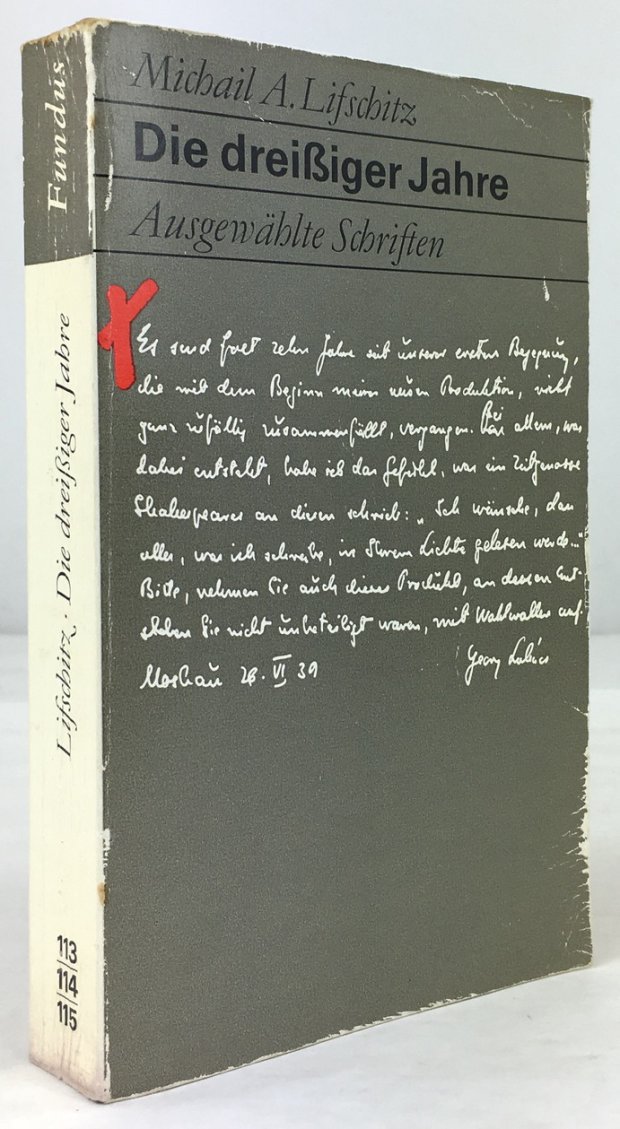 Michail A. Lifschitz
Die dreißiger Jahre
Ausgewählte Schriften
Es sind fast zehn Jahre seit unserer ersten Begegnung,
die mit dem Beginn meiner neuen Produktion, nicht
ganz zufällig zusammenfällt, vergangen. Bei allem, was
dabei entsteht, habe ich das Gefühl, was ein Zeitgenosse
Shakespeares an diesen schrieb: „Ich wünsche, dass
alles, was ich schreibe, in Ihrem Lichte gelesen werde..."
Bitte, nehmen Sie auch dieses Produkt, an dessen Ent-
stehen Sie nicht unbeteiligt waren, mit Wohlwollen auf.
Georg Lukács
Moskau 28. VI 39
Fundus
Lifschitz · Die dreißiger Jahre
113
114
115